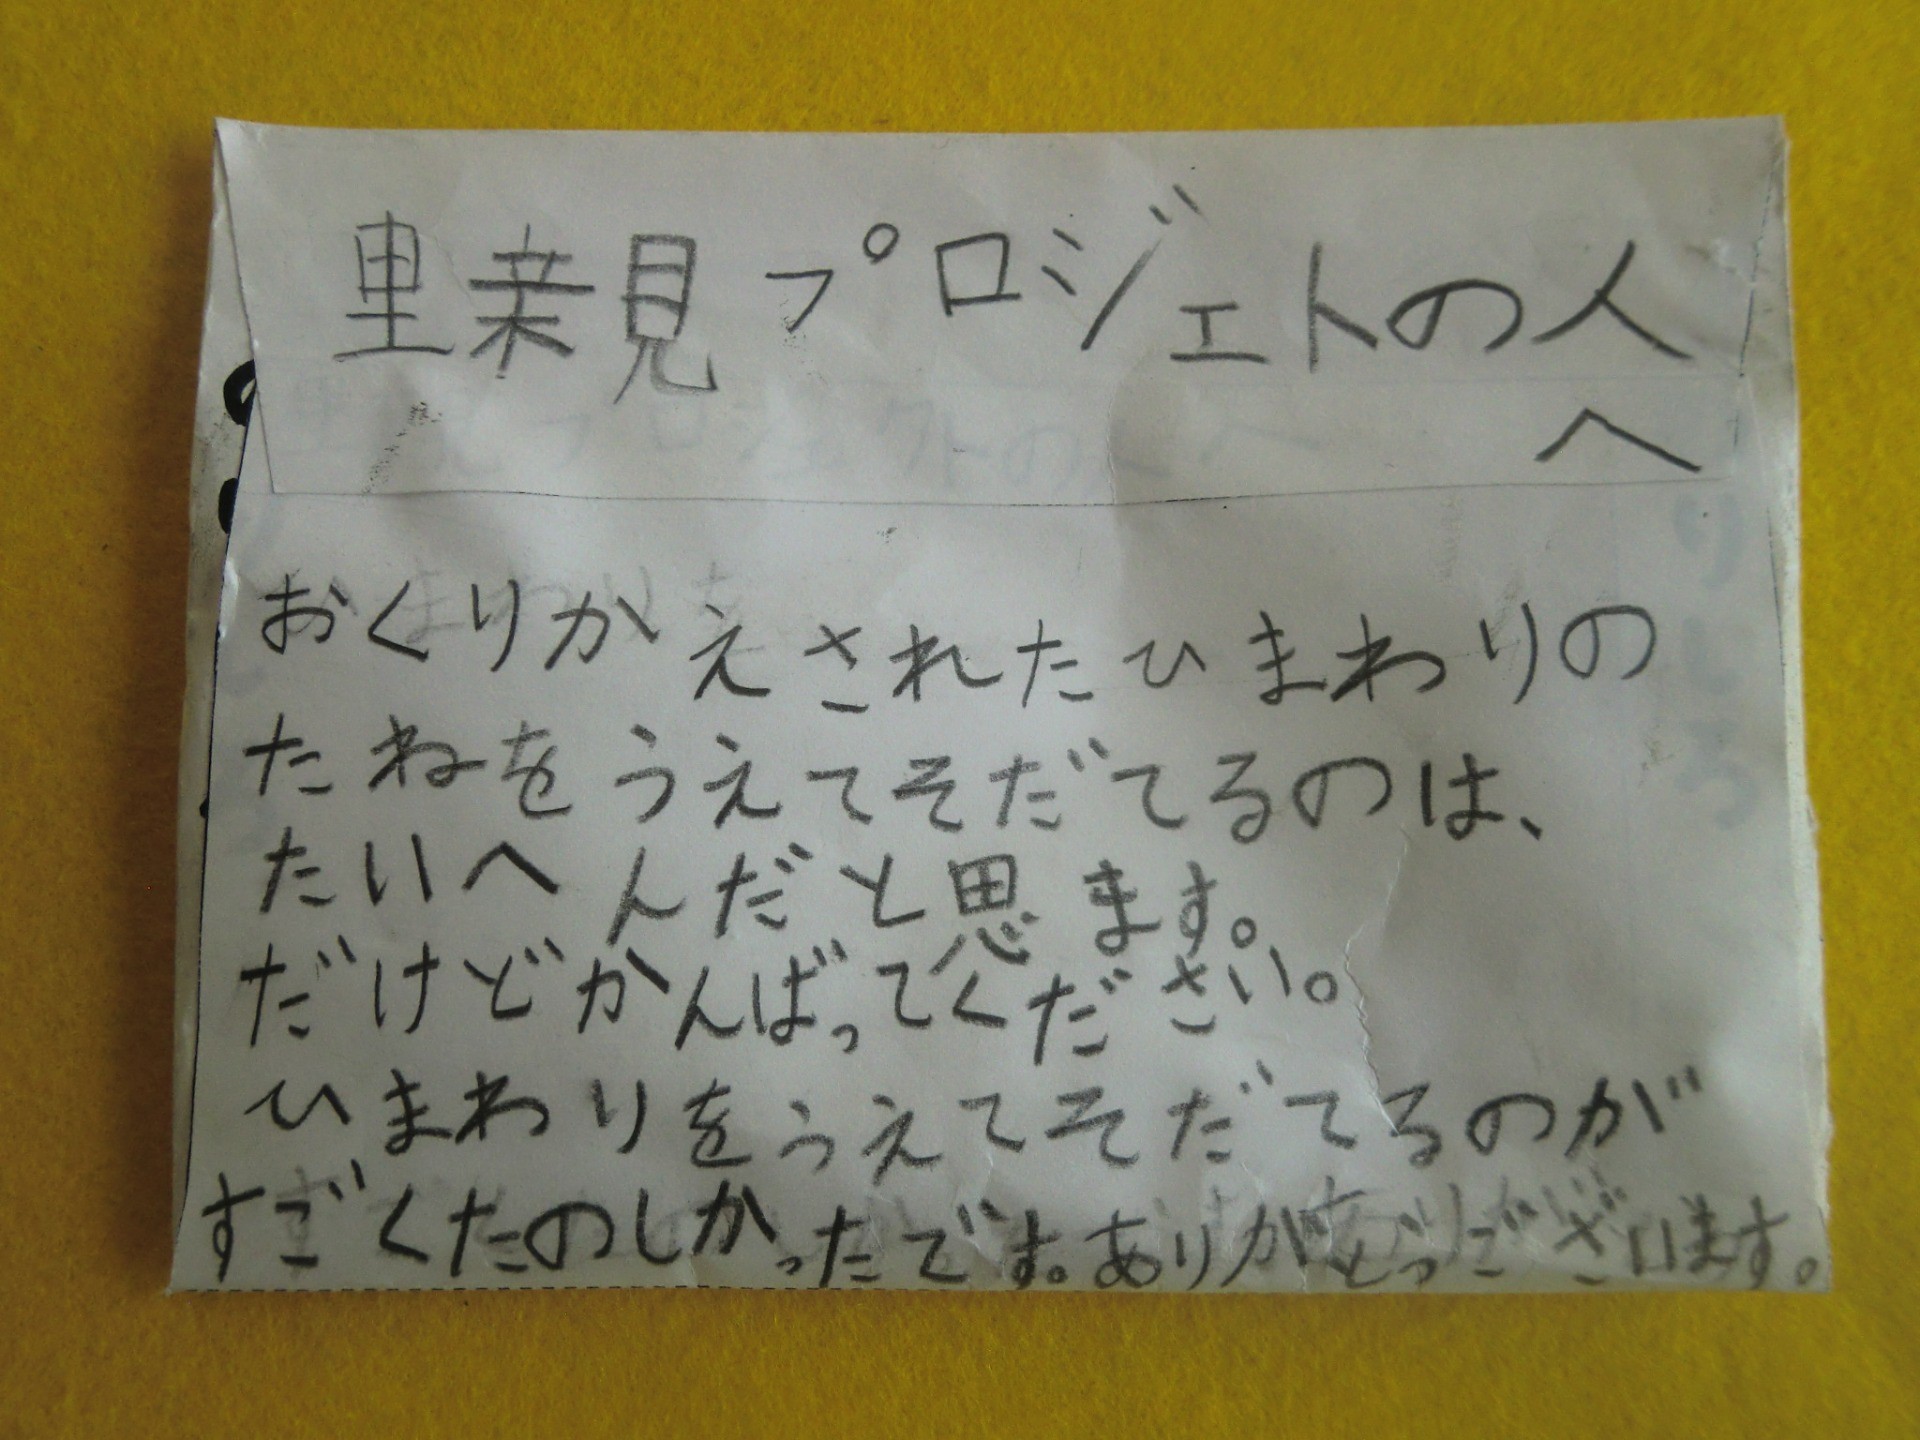 里親見プロジェトの人
へ
おくりかえされたひまわりの
たねをうえてそだてるのは、
たいへんだと思ます。
だけどかんばってください。
ひまわりをうえてそだてるのが
すごくたのしかったです。ありがとうございます。